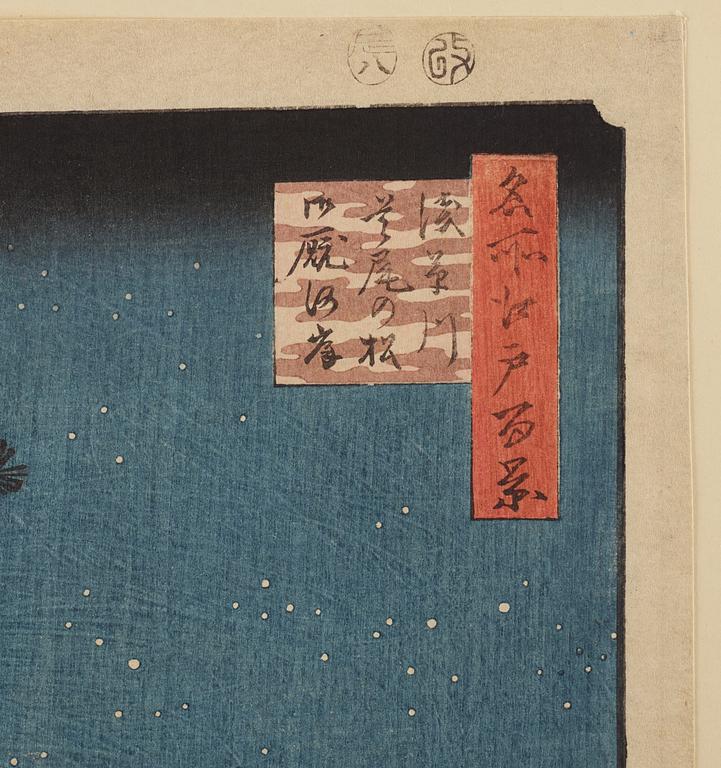 名所江戸百景
浅草川
首尾の松
御厩河岸
改
辰八